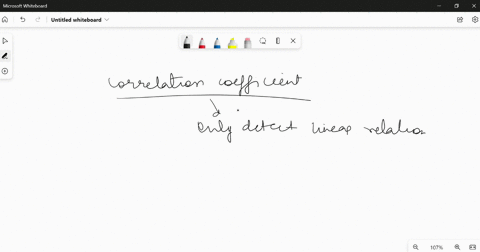 Microsoft Whiteboard
Untitled whiteboard
correlation coefficient
only detect linear relatio
107%